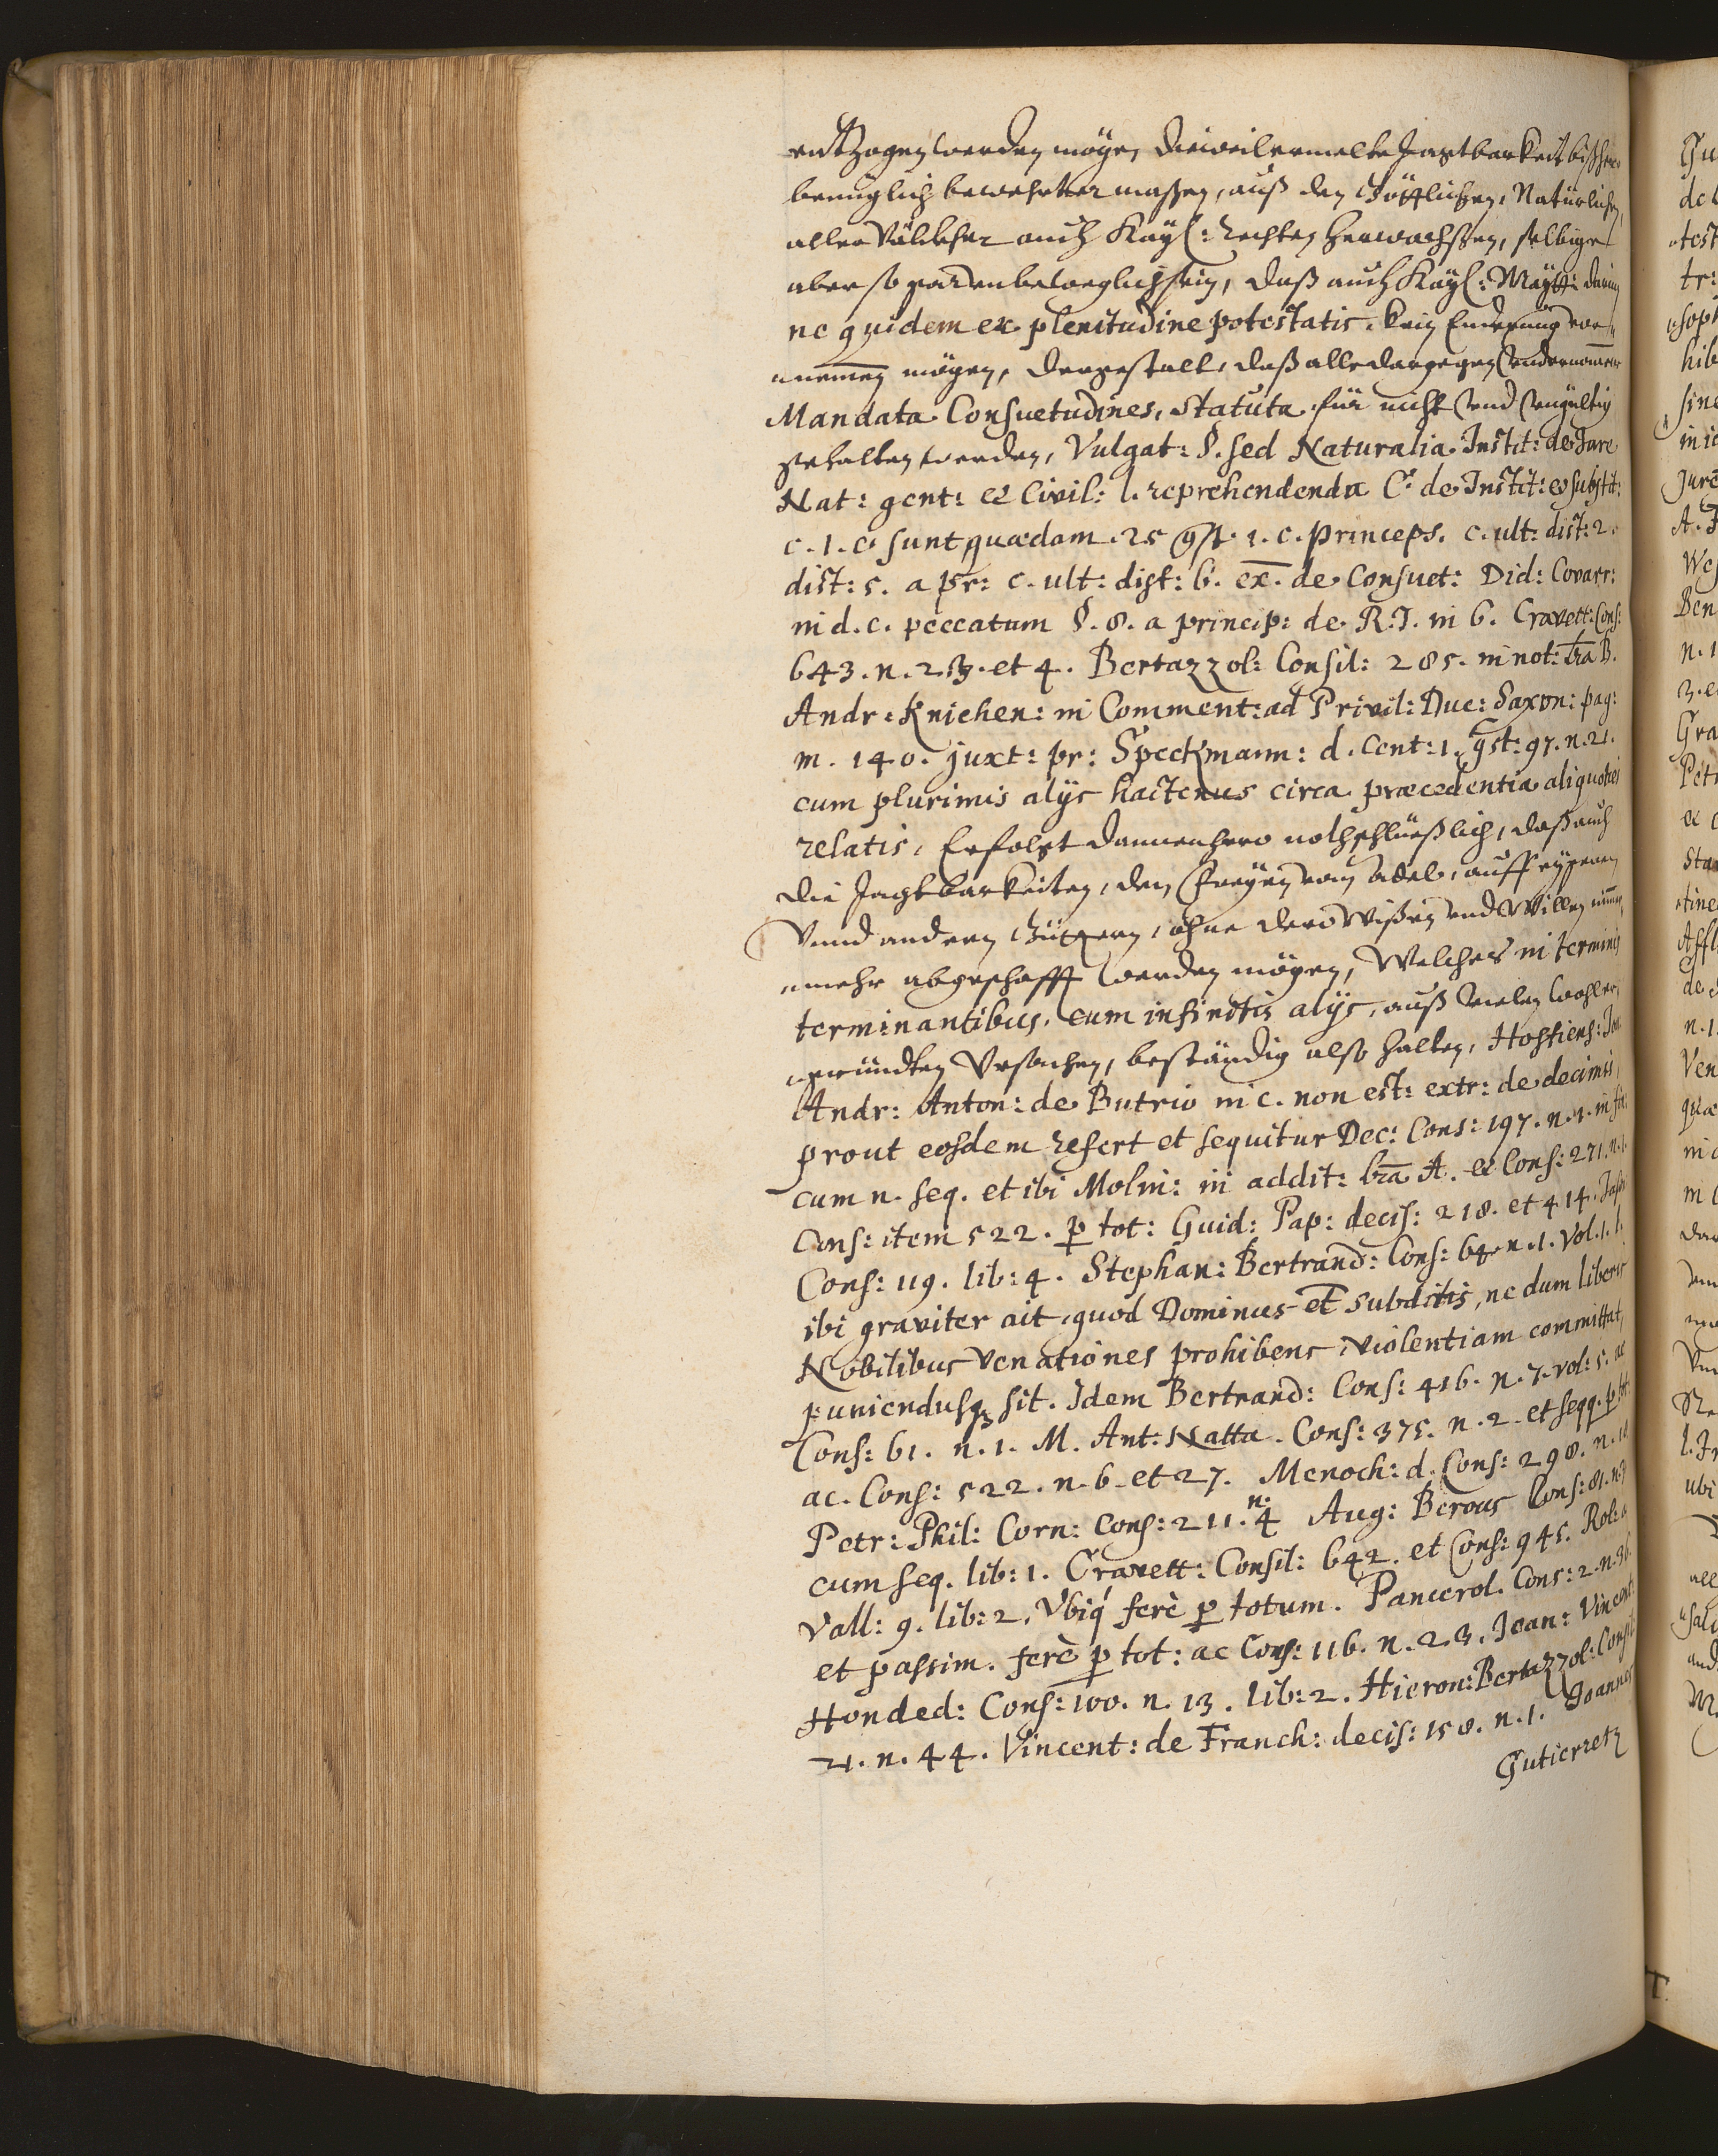 entzogen werden möge, dieweil ermelte Jagtbarkeit bißhero
benüglich bewehrter maßen, auß den Göttlichen, Natürlichen,
aller Völckher auch Kayß: Rechten herwachßen, selbige
aber so gar unbeweglich sein, daß auch Kayß: Maytt: darin
ne quidem ex plenitudine potestatis kein Enderung vor¬
nemen mögen, dergestalt, daß alle dargegen vndernomene
Mandata Consuetudines, Statuta für nicht vnd vngültig
gehalten werden, Vulgat: §. sed Naturalia Instit: de Jure
Nat: gent: et Civil: l. reprehendenda C. de Instit: et substit:
c. 1. c. sunt quædam. 25 qst. 1. c. princeps. c. ult: dist: 2.
dist: 5. a pr: c. ult: dist: 6. ex. de Consuet: Did: Covarr:
in d. c. peccatum §. 8. a princip: de R. J. in 6. Cravett: Cons:
643. n. 2. 3. et 4. Bertazzol: Consil: 285. in not: lra B.
Andr: Knichen: in Comment: ad Privil: Duc: Saxon: pag:
m. 140. juxt: pr: Speckmann: d. Cent: 1. qst: 97. n. 21.
cum plurimis alijs hactenus circa præcedentia aliquoties
relatis, Erfolgt dannenhero nothschlüeßlich, daß auch
die Jagtbarkeiten, den Freyen vom Adel, auff eygenen
Vnnd andern Güttern, ohne dero Wißen vnd Willen nimmer
mehr abgeschafft werden mögen, Welches in terminis
terminantibus, cum infinitis alijs, auß vielen wohlbe¬
gründten Vrsachen, beständig also halten, Hostiens: Jo:
Andr: Anton: de Butrio in c. non est: extr: de decimis,
prout eosdem refert et sequitur Dec: Cons: 197. n. 1. in fin:
cum n. seq. et ibi Molin: in addit: lra A. et Cons: 271. n. 1.
Cons: item 522. p tot: Guid: Pap: decis: 218. et 414. Jason
Cons: 119. lib: 4. Stephan: Bertrand: Cons: 64 n. 1. Vol. 1.
ibi graviter ait, quod Dominus et subditis, ne dum liberis
Nobilibus venationes prohibens, violentiam committat,
puniendusq sit. Idem Bertrand: Cons: 416. n. 7. vol: 5. ac
Cons: 61. n. 1. M. Ant: Natta. Cons: 375. n. 2. et seqq. p tot:
ac. Cons: 522. n. 6. et 27. Menoch: d. Cons: 298. n. 10
Petr: Phil: Corn: Cons: 211. n: 4 Aug: Berous Cons: 81. n. 7
cum seq. lib: 1. Cravett: Consil: 642. et Cons: 945. Rol: a
Vall: 9. lib: 2. Vbiq ferè p totum. Pancirol. Cons: 2. n. 36.
et passim. ferè p tot: ac Cons: 116. n. 2. 3. Joan: Vincent:
Honded: Cons: 100. n. 13. lib: 2. Hieron: Bertazzol: Consil:
21. n. 44. Vincent: de Franch: decis: 158. n. 1. Joannes
Gutierretz